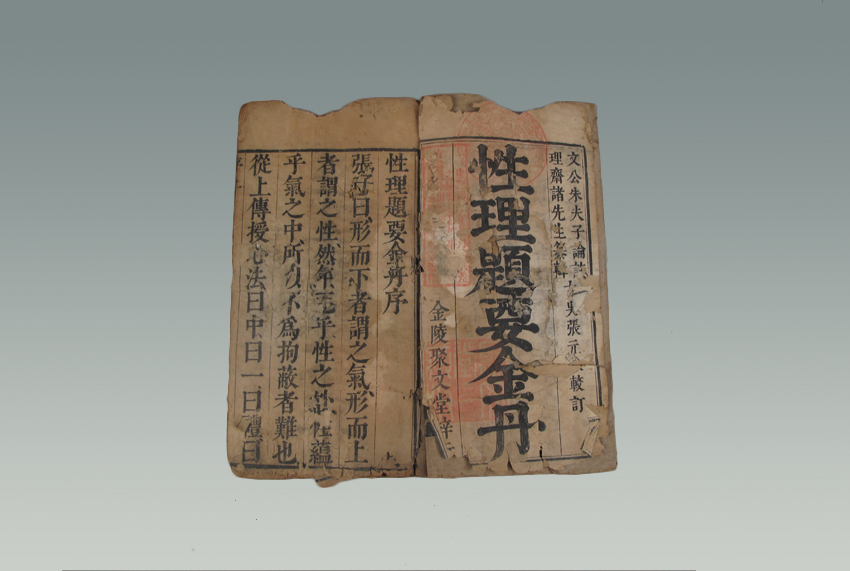 文公朱夫子論
理齋諸先生纂輯 吳張元 較訂
性理題要金丹
金陵聚文堂梓
性理題要金丹序
張子曰形而下者謂之氣形而上
者謂之性然氣 乎性之 性蘊
乎氣之中所以不爲拘蔽者難也
從上傳授心法曰中曰一曰禮曰